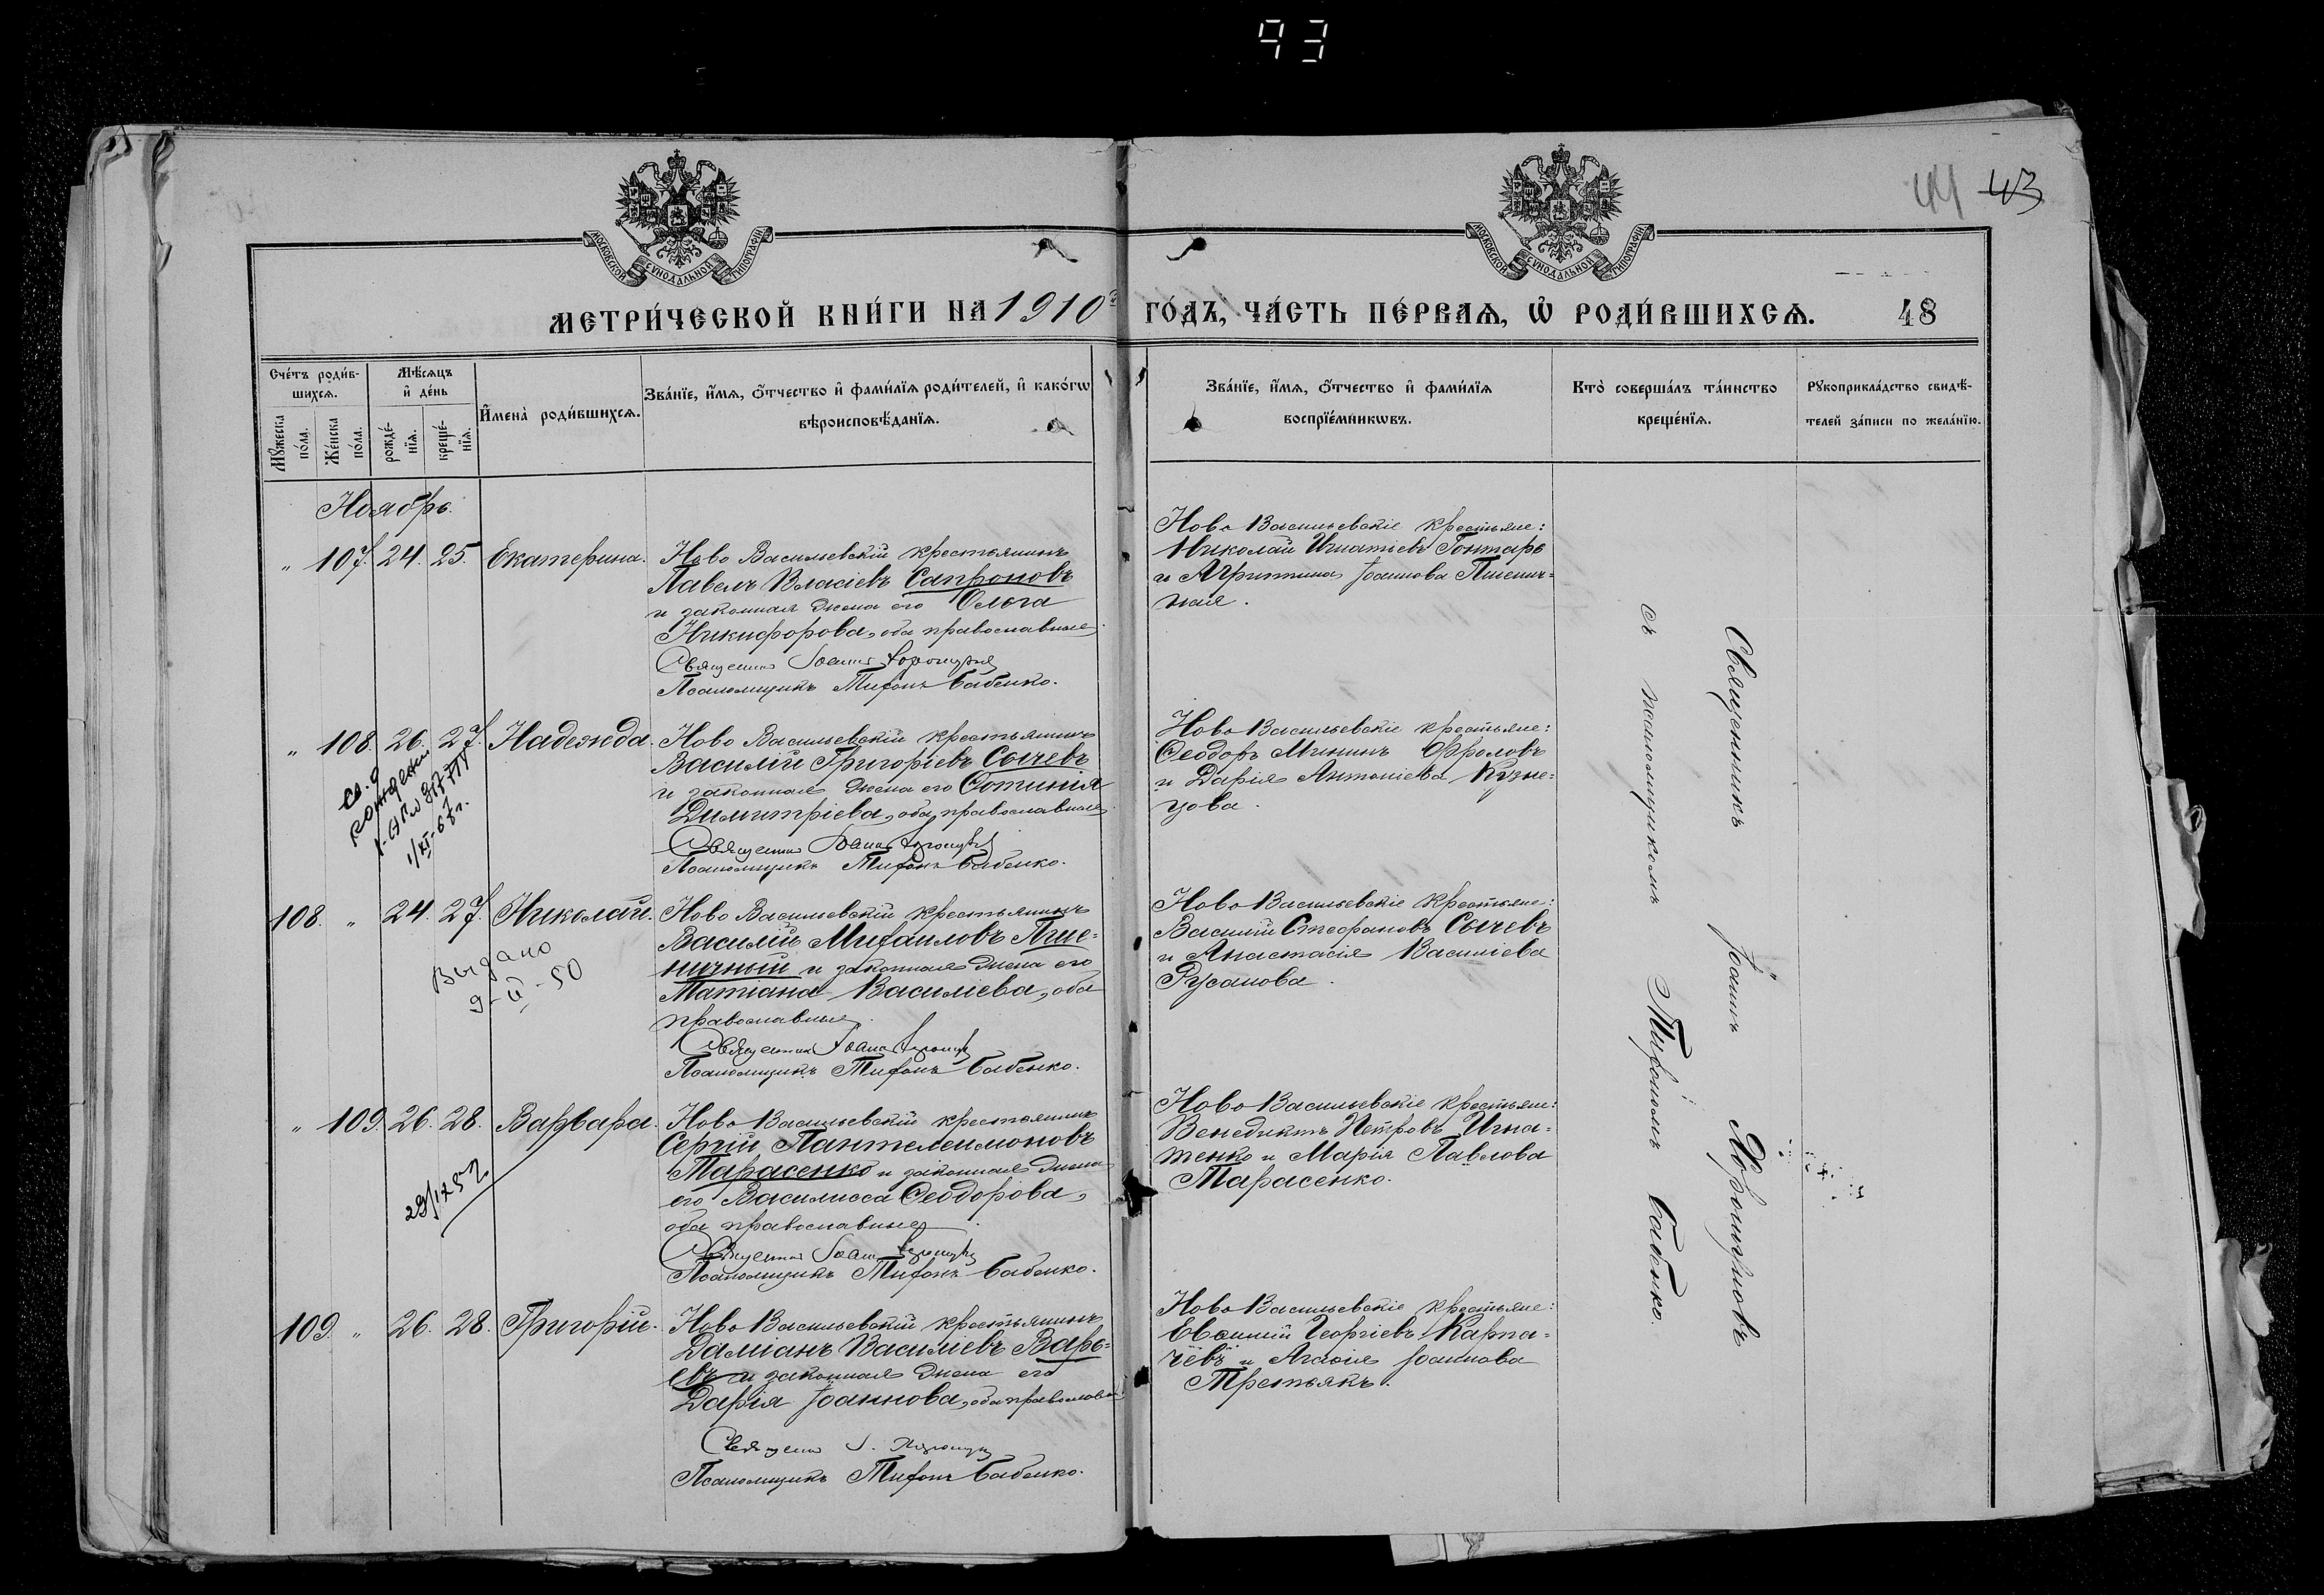 93
44 43
МОСКОВСКОЙ СѴНОДАЛЬНОЙ ТИПОГРАФІИ
МОСКОВСКОЙ СѴНОДАЛЬНОЙ ТИПОГРАФІИ
МЕТРИ́ЧЕСКОЙ КНИ́ГИ НА 1910й ГО́ДЪ, ЧА́СТЬ ПЕ́РВАѦ, Ѡ҆ РОДИ́ВШИХСѦ. 48
Сче́тъ роди́в-
шихсѧ.
Мꙋ́жеска по́ла.
Же́нска по́ла.
Мѣ́сѧцъ
и҆ де́нь
рожде́-
нїѧ.
креще́-
нїѧ.
И҆мена̀ роди́вшихсѧ.
Зва́нїе, и҆́мѧ, ѻ҆́тчество и҆ фами́лїѧ роди́телей, и҆ како́гѡ
вѣроисповѣ́данїѧ.
Зва́нїе, и҆́мѧ, ѻ҆́тчество и҆ фами́лїѧ
воспрїе́мникѡвъ.
Кто̀ соверша́лъ та́инство
креще́нїѧ.
Рꙋкоприкла́дство свидѣ́-
телей за́писи по жела́нїю.
Ноябрь.
" 107. 24. 25. Екатерина.
Ново Васильевскій крестьянинъ
Павелъ Власіевъ Сапроновъ
и законная жена его Ольга
Никифорова, оба православные.
Священник Іоанн
Псаломщикъ Тихонъ Бабенко.
Ново Васильевскіе крестьяне:
Николай Игнатіевъ Гонтарь
и Агриппина Іоаннова Пшенич=
ная.
" 108. 26. 27. Надежда.
1/XI-67г.
Ново Васильевскій крестьянинъ
Василій Григоріевъ Сычевъ
и законная жена его Фотинія
Димитріева, оба православные.
Священник Іоанн
Псаломщикъ Тихонъ Бабенко.
Ново Васильевскіе крестьяне:
Ѳеодоръ Мининъ Фроловъ
и Дарія Антоніева Кузне=
цова.
108. " 24. 27. Николай.
Выдано
9-II-50
Ново Васильевскій крестьянинъ
Василій Михаиловъ Пше=
ничный и законная жена его
Татіана Василіева, оба
православные.
Священник Іоанн
Псаломщикъ Тихонъ Бабенко.
Ново Васильевскіе крестьяне:
Василій Стефановъ Сычевъ
и Анастасія Василіева
Русанова.
" 109. 26. 28. Варвара.
Ново Васильевскій крестьянинъ
Сергій Пантелеимоновъ
Тарасенко и законная жена
его Василисса Ѳеодорова,
оба православные.
Священник Іоанн
Псаломщикъ Тихонъ Бабенко.
Ново Васильевскіе крестьяне:
Венедиктъ Петровъ Игна=
тенко и Марія Павлова
Тарасенко.
109. " 26. 28. Григорій.
Ново Васильевскій крестьянинъ
Даміанъ Василіевъ Варь=
евъ и законная жена его
Дарія Іоаннова, оба православные
Священник І.
Псаломщикъ Тихонъ Бабенко.
Ново Васильевскіе крестьяне:
Евѳимій Георгіевъ Карпа=
чёвъ и Агаѳія Іоаннова
Третьякъ.
Священникъ Іоаннъ
съ псаломщикомъ Тихономъ Бабенко.